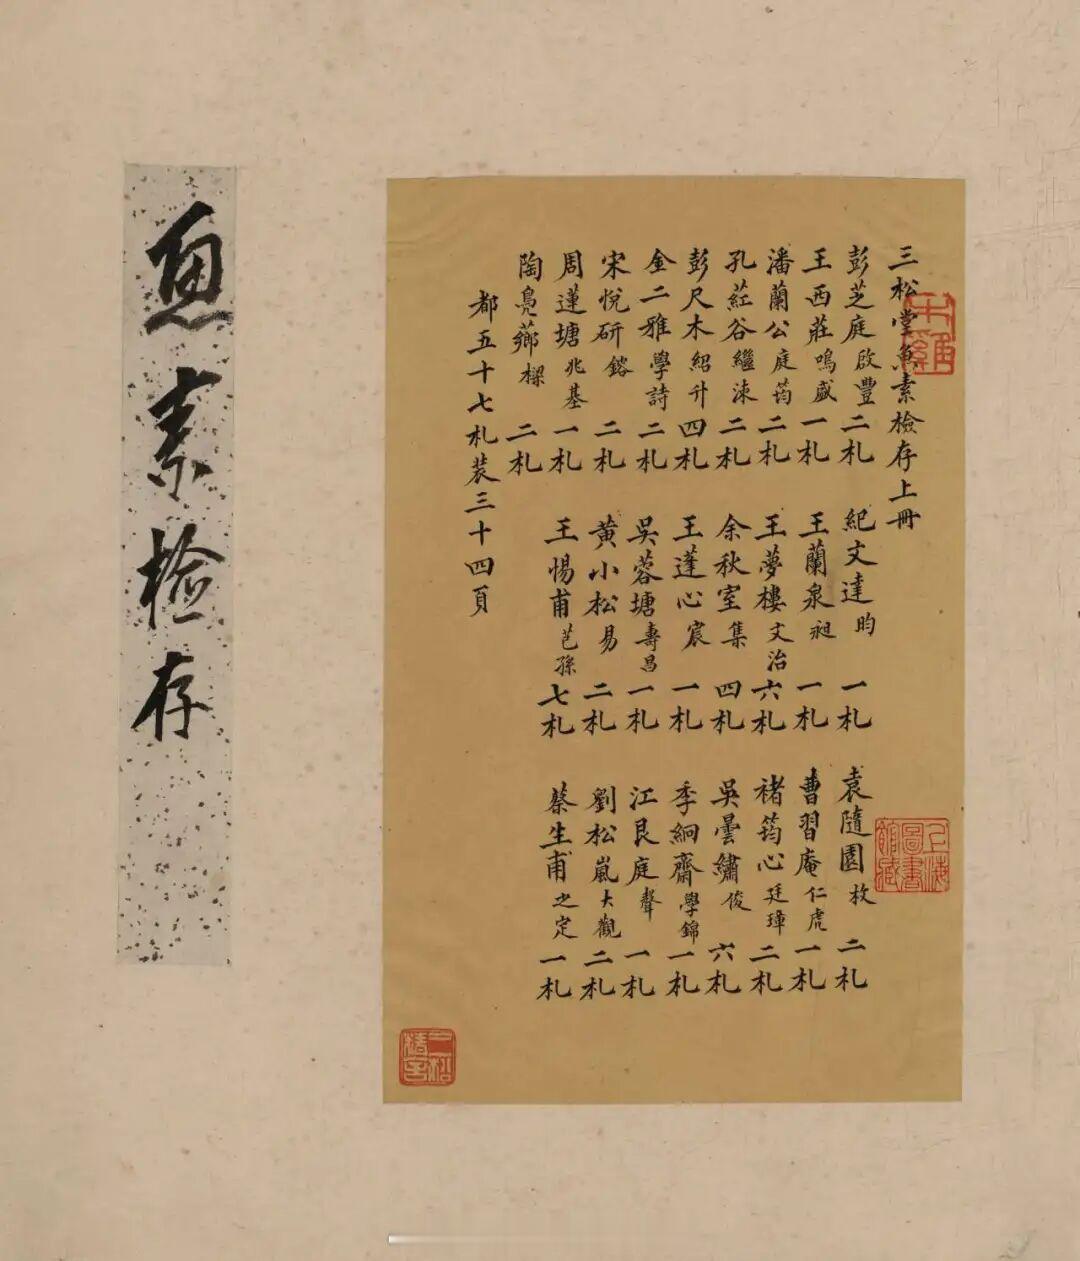 三松堂魚素檢存上冊
彭芝庭啟豐 二札 紀文達昀 一札 袁隨園枚 二札
王西莊鳴盛 一札 王蘭泉昶 一札 曹習庵仁虎 一札
潘蘭公庭筠 二札 王夢樓文治 六札 褚筠心廷璋 二札
孔葒谷繼涑 二札 余秋室集 四札 吳曇繡俊 六札
彭尺木紹升 四札 王蓬心宸 一札 季絅齋學錦 一札
金二雅學詩 二札 吳蓉塘壽昌 一札 江艮庭聲 一札
宋悅研鎔 二札 黃小松易 二札 劉松嵐大觀 二札
周蓮塘兆基 一札 王惕甫芑孫 七札 蔡生甫之定 一札
陶鳧薌樑 二札
都五十七札裝三十四頁
魚素檢存
上海圖書館藏